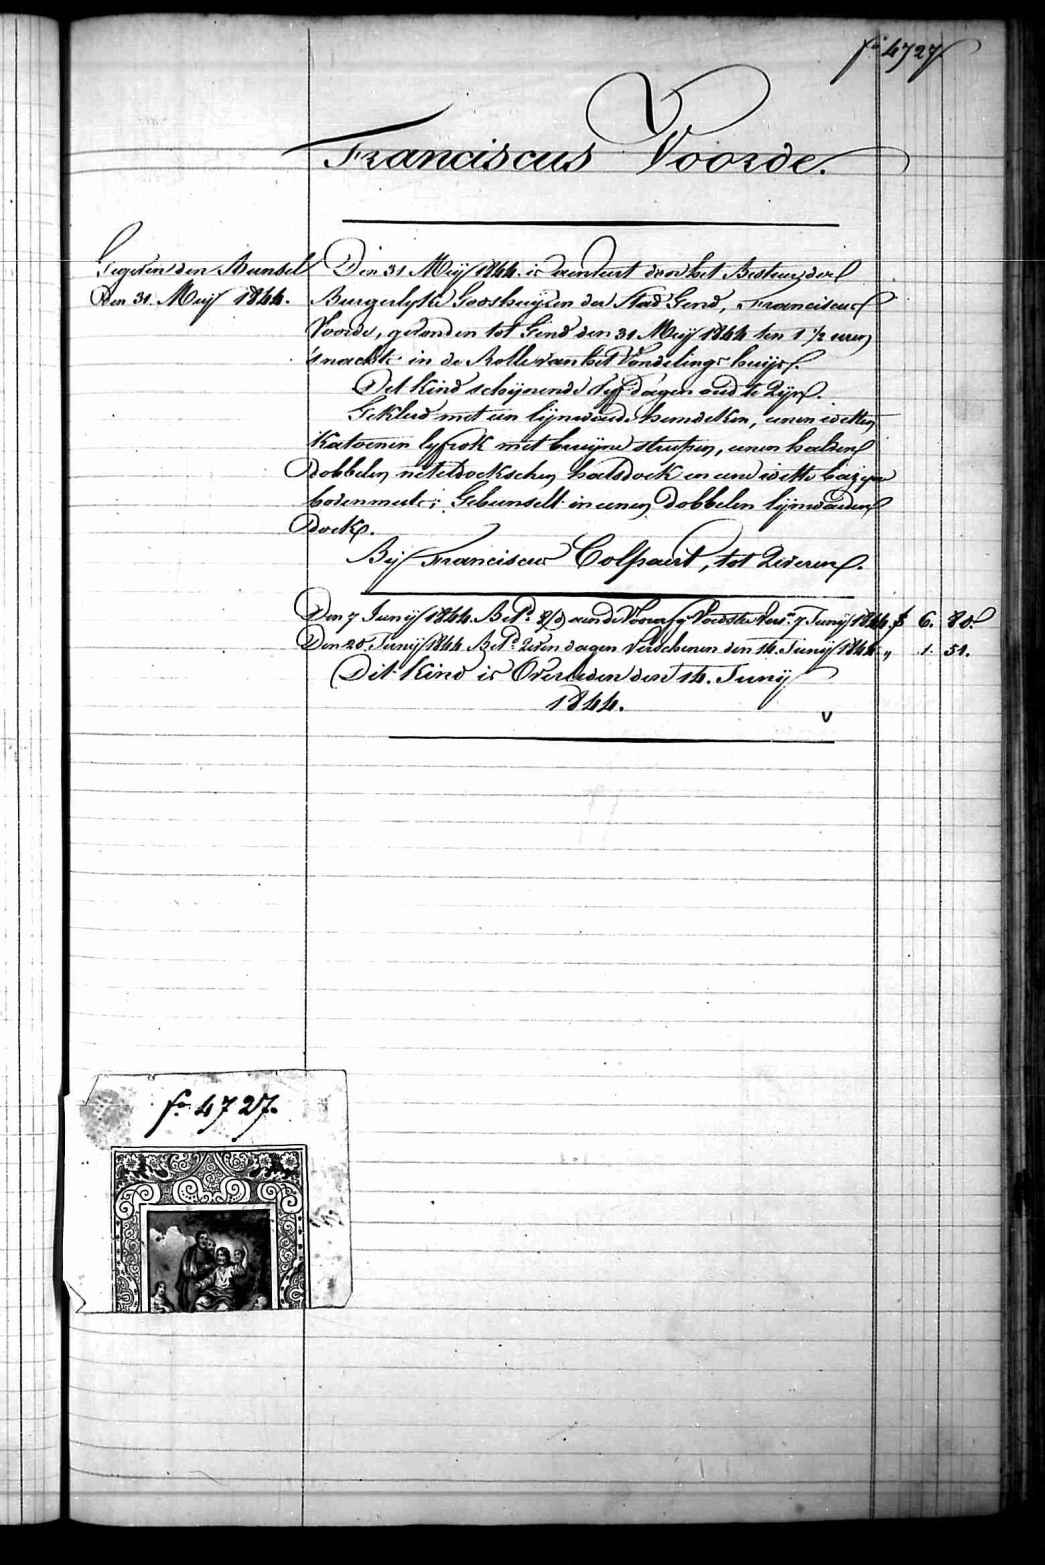 fo 4727
Franciscus Voorde.
Gegeven den Bunsel
den 31. Meij 1844.
Den 31 Meij 1844. is aenveert door het Bestuer der
Burgerlyke Godshuyzen der Stad Gend, Franciscus
Voorde, gevonden tot Gend den 31 Meij 1844 ten 1 1/2 uren
snachts in de Rolle van het Vondelings huijs.
Dit kind schijnende vijf dagen oud te zijn.
Gekleed met een lijnwaede hemdeken, eenen witten
Katoenen lyfrok met bruijne streepen, eenen halven
dobbelen neteldoekschen halsdoek en eene witte
bovenmuts; Gebunselt in eenen dobbelen lijnwaeden
doek.
Bij Franciscus Colpaert, tot Zeveren.
Den 7 Junij 1844. Bet. aen de Voedster 7 Junij 1844 f 6. 80.
Den 20 Junij 1844. Bet. zeven dagen verschenen den 14. Junij 1844 „ 1. 51.
Dit kind is Overleden den 14. Junij
1844.
v
fo 4727.